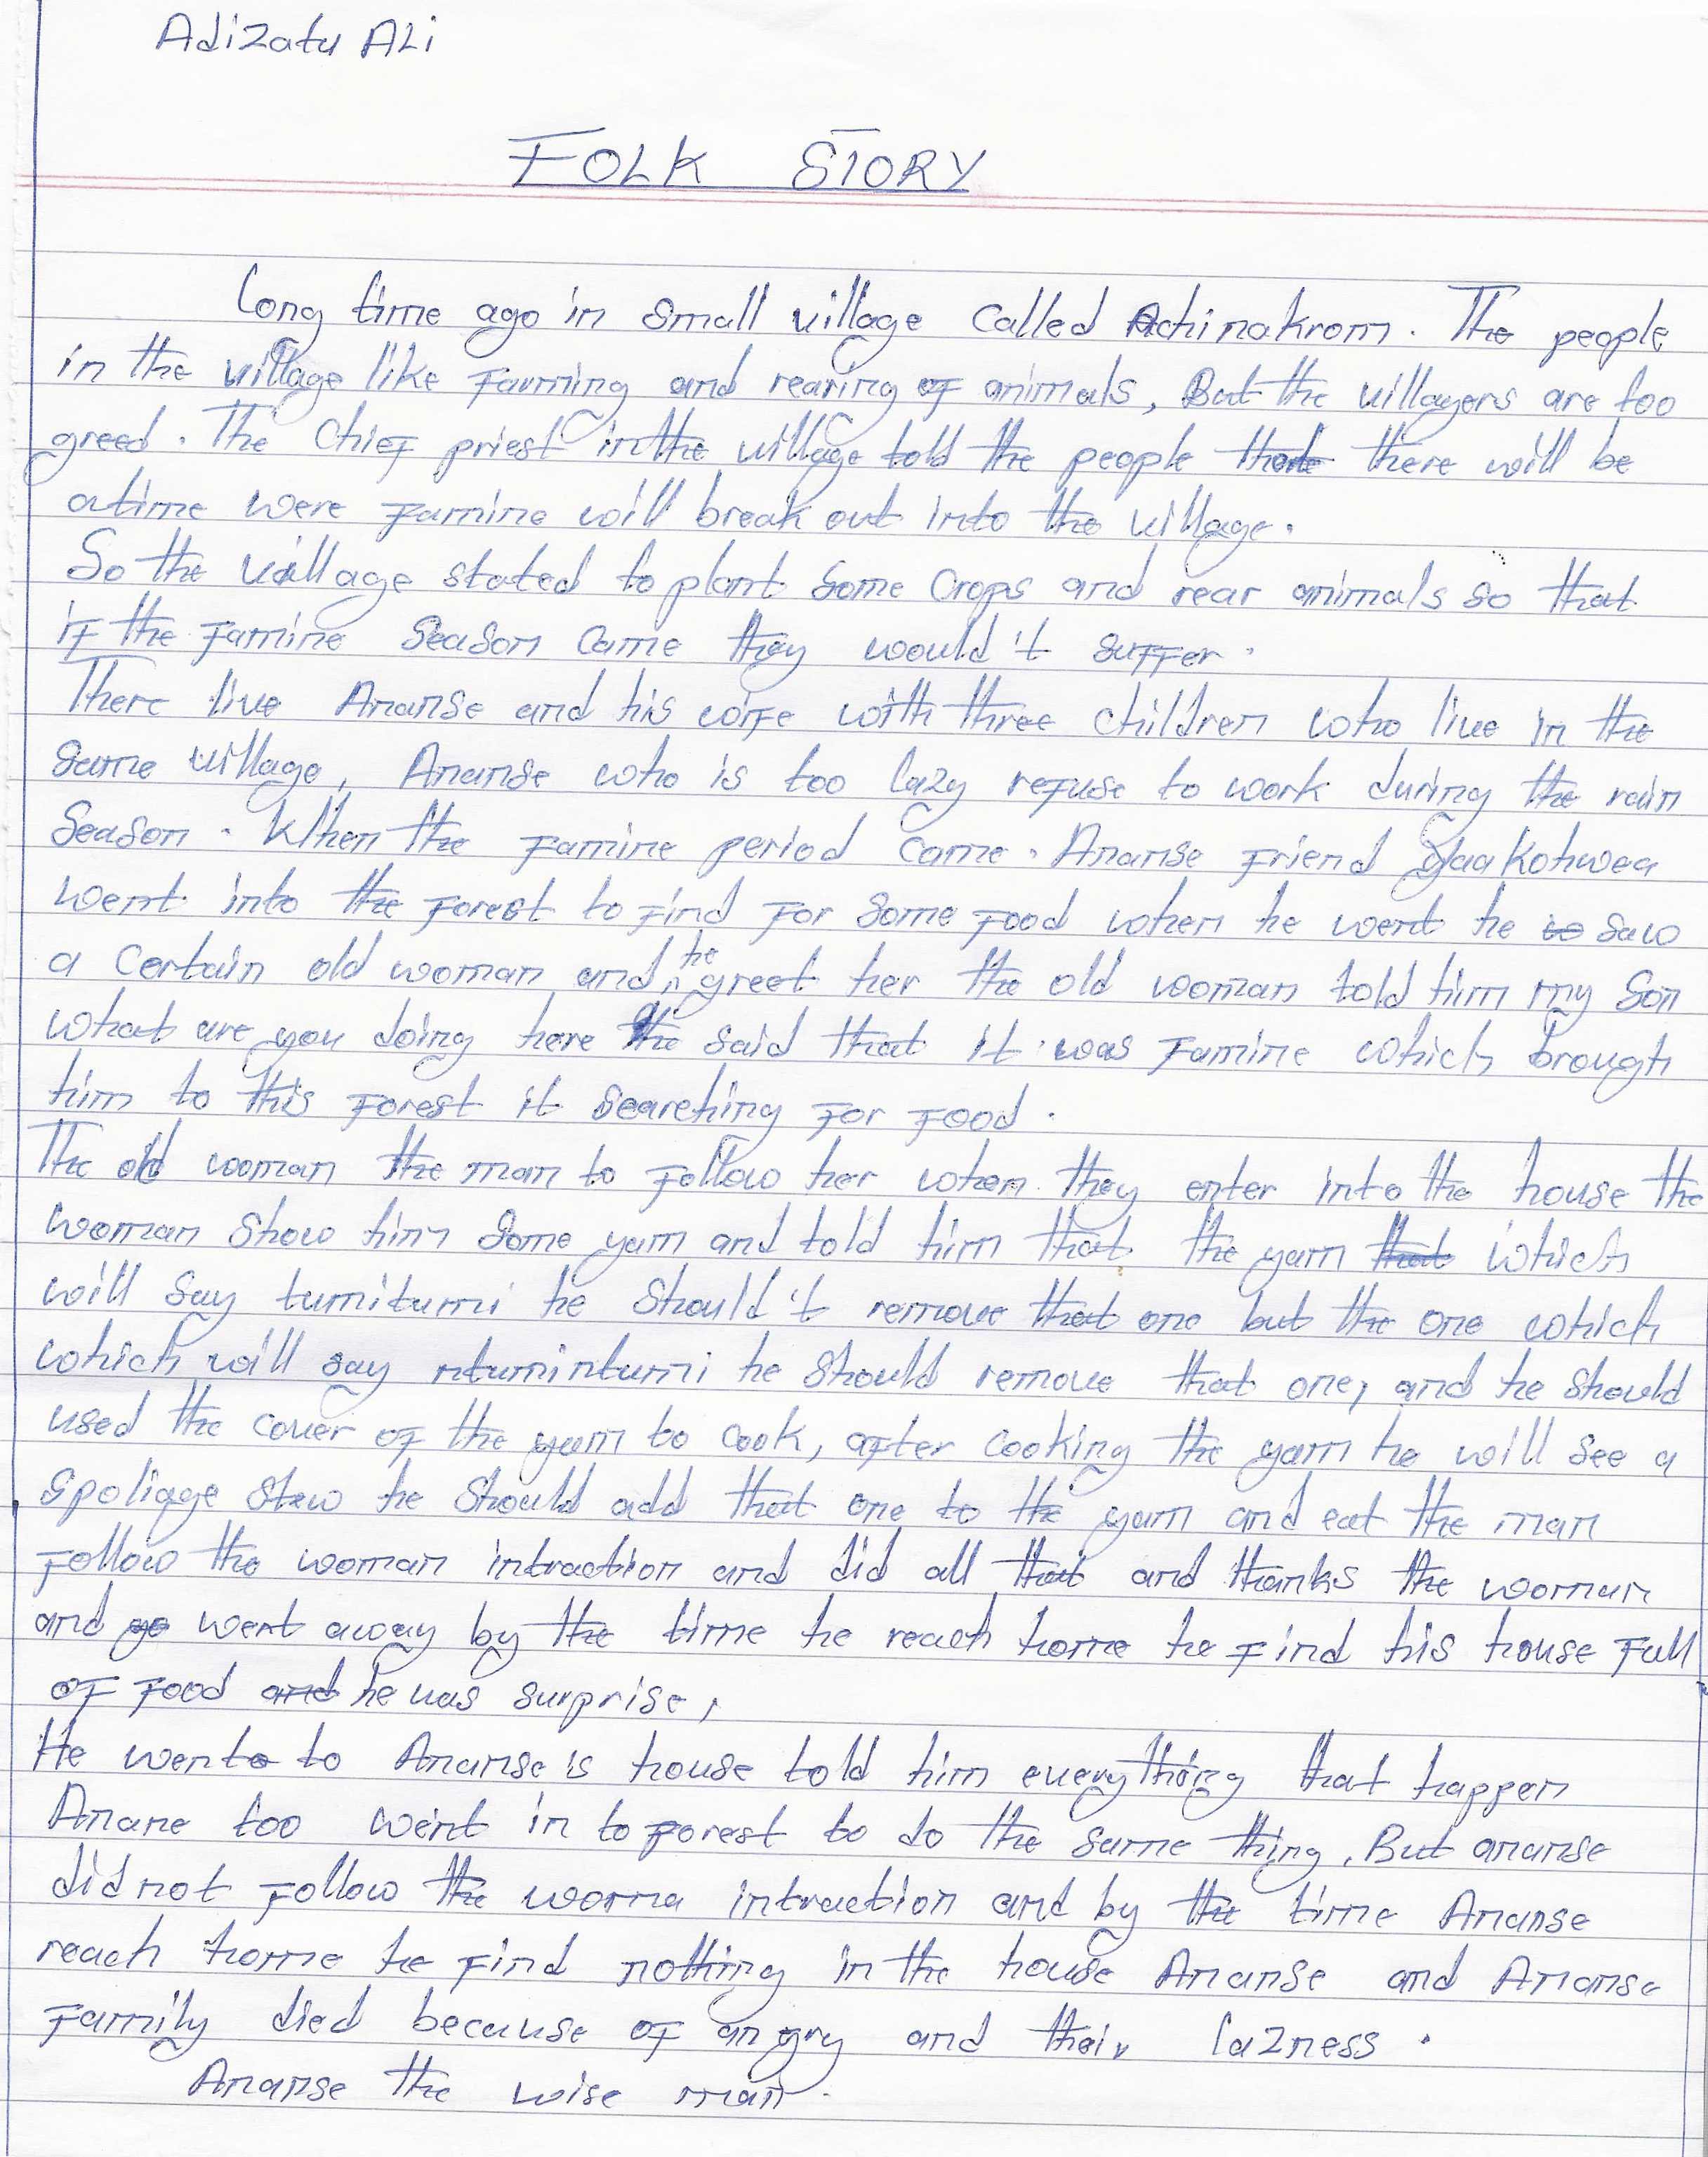 Adizatu Ali
FOLK STORY
Long time ago in small village called Achinakrom. The people
in the village like farming and rearing of animals, But the villagers are too
greed. The Chief priest in the village told the people that there will be
a time were famine will break out into the village.
So the village stated to plant some crops and rear animals so that
if the famine season came they would't suffer.
There live Ananse and his wife with three children who live in the
same village, Ananse who is too lazy refuse to work during the rain
season. When the famine period came. Ananse friend Yaakohwea
went into the forest to find for some food when he went he saw
a certain old woman and he greet her the old woman told him my son
what are you doing here he said that it was famine which brough
him to this forest it searching for food.
The old woman the man to follow her when they enter into the house the
woman show him some yam and told him that the yam which
will say tumitumi he should't remove that one but the one which
which will say ntumintumi he should remove that one, and he should
used the cover of the yam to cook, after cooking the yam he will see a
spoliage stew he should add that one to the yam and eat the man
follow the woman intraction and did all that and thanks the woman
and went away by the time he reach home he find his house full
of food he was surprise,
He went to Ananse is house told him everything that happen
Anane too went in to forest to do the same thing, But ananse
did not follow the worma intraction and by the time Ananse
reach home he find nothing in the house Ananse and Ananse
family died because of angry and their lazness.
Ananse the wise man.